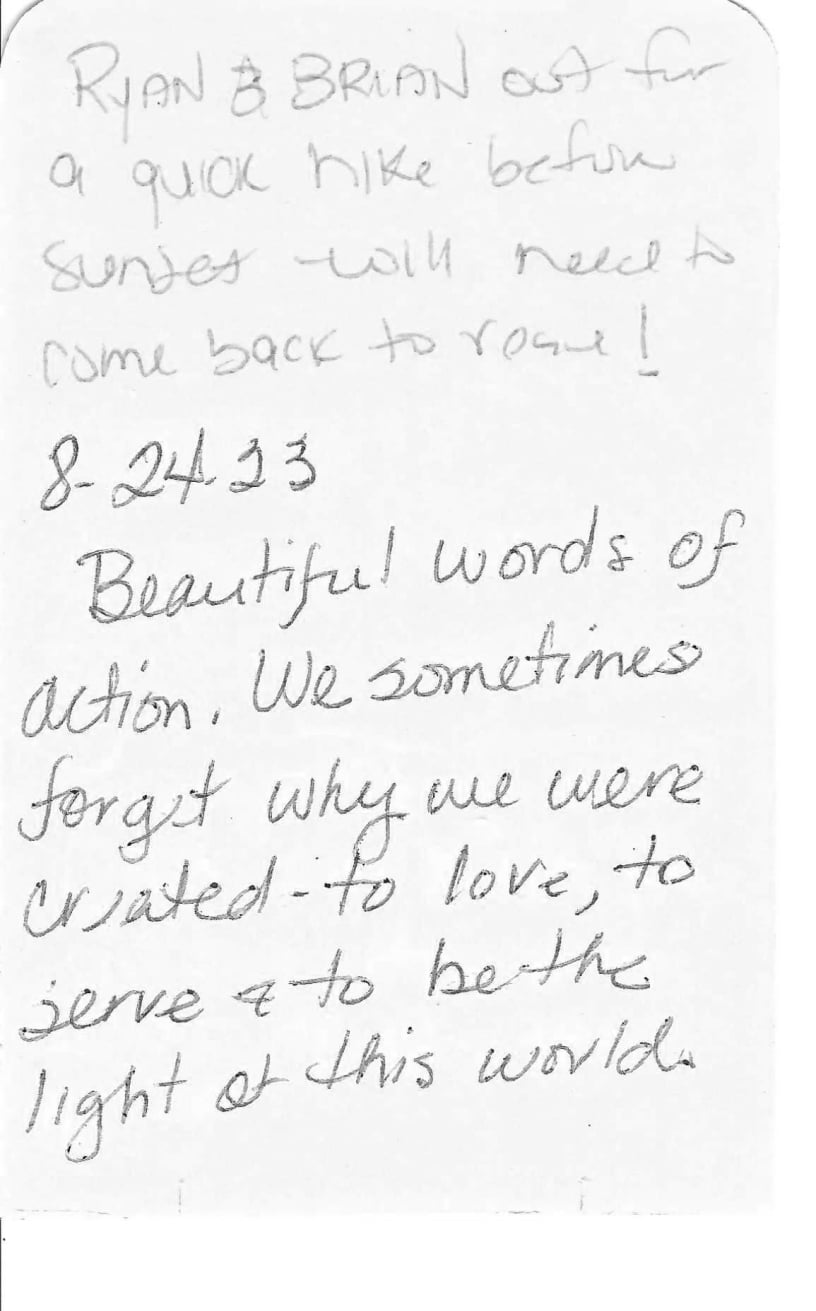 RYAN & BRIAN out for
a quick hike before
sunset - will need to
come back to
8-24-23
Beautiful words of
action. We sometimes
forget why we were
created - to love, to
serve & to be the
light of this world.